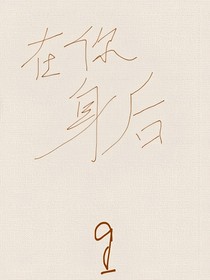 在你
身后